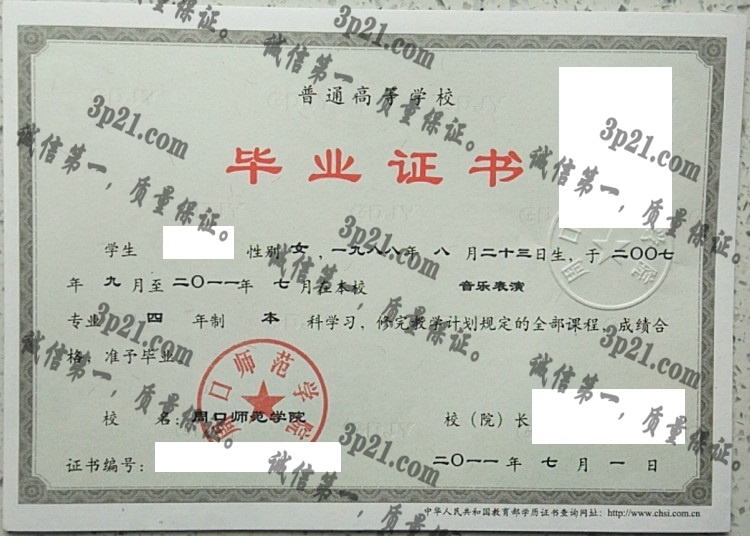 普通高等学校
毕业证书
学生 性别 女，一九八八年 八 月二十三日生，于 二〇〇七
年 九 月至 二〇一一年 七 月在本校 音乐表演
专业 四 年制 本 科学习，修完教学计划规定的全部课程，成绩合
格，准予毕业。
校 名：周口师范学院 校（院）长
证书编号： 二〇一一 年 七 月 一 日
中华人民共和国教育部学历证书查询网址：http://www.chsi.com.cn
周口师范学院
3p21.com
诚信第一，质量保证。
3p21.com
诚信第一，质量保证。
3p21.com
诚信第一，质量保证。
3p21.com
诚信第一，质量保证。
3p21.com
诚信第一，质量保证。
3p21.com
诚信第一，质量保证。
3p21.com
诚信第一，质量保证。